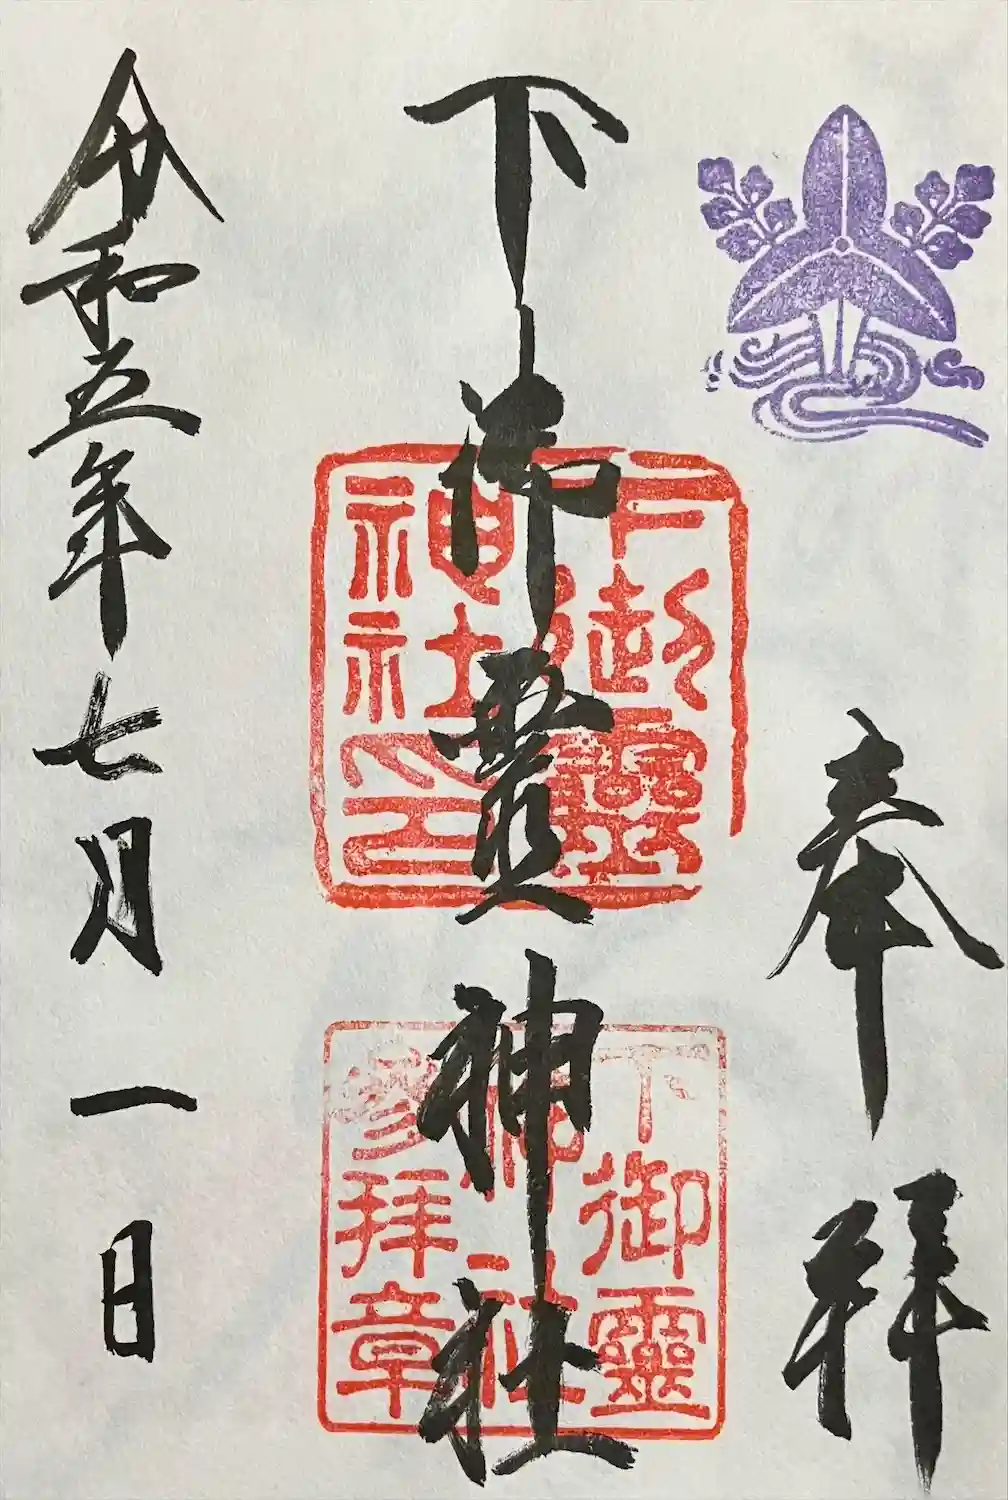 奉拝
下御霊神社
下御靈
神社印
下御靈
神社
參拝章
令和五年七月一日